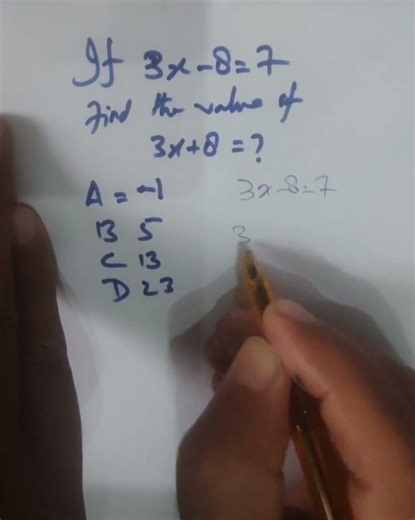 If 3x-8=7
Find the value of
3x+8=?
A = -1
3x-8=7
B 5
3
C 13
D 23